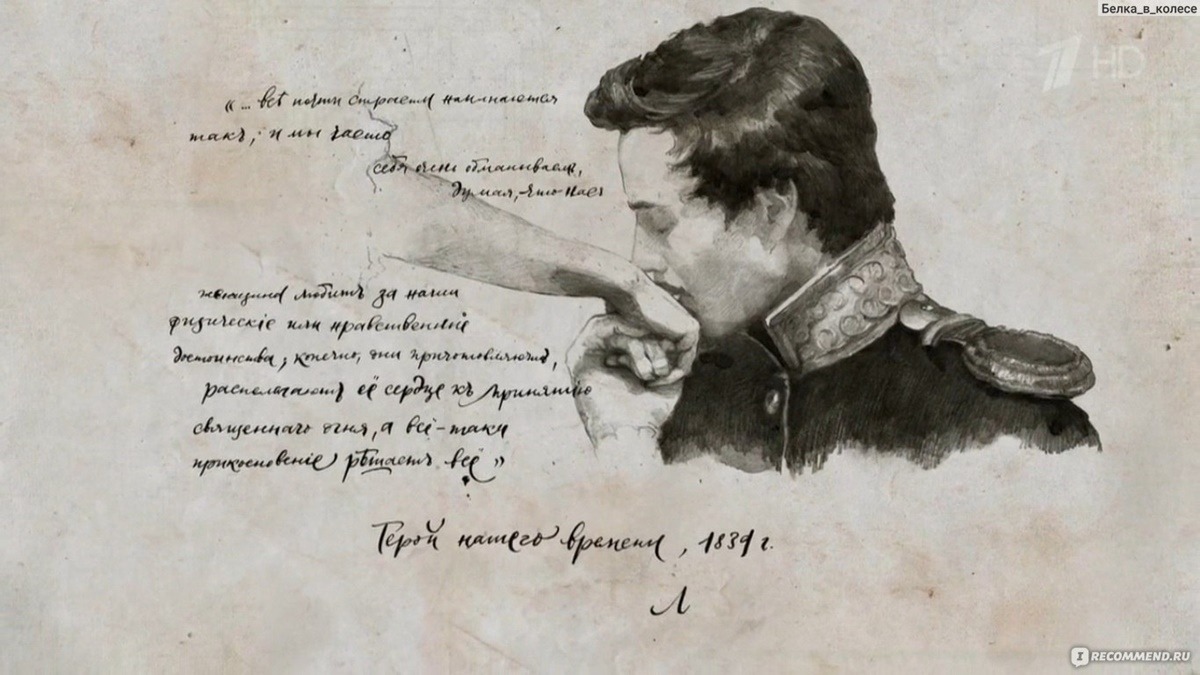 Белка_в_колесе
1 HD
«... всѣ почти страсти начинаются
такъ, и мы часто
себя очень обманываемъ,
думая, что насъ
женщина любитъ за наши
физическіе или нравственные
достоинства; конечно, они приготовляютъ,
располагаютъ её сердце къ принятію
священнаго огня, а всё-таки
прикосновеніе рѣшаетъ всё»
Герой нашего времени, 1839 г.
Л
IRECOMMEND.RU